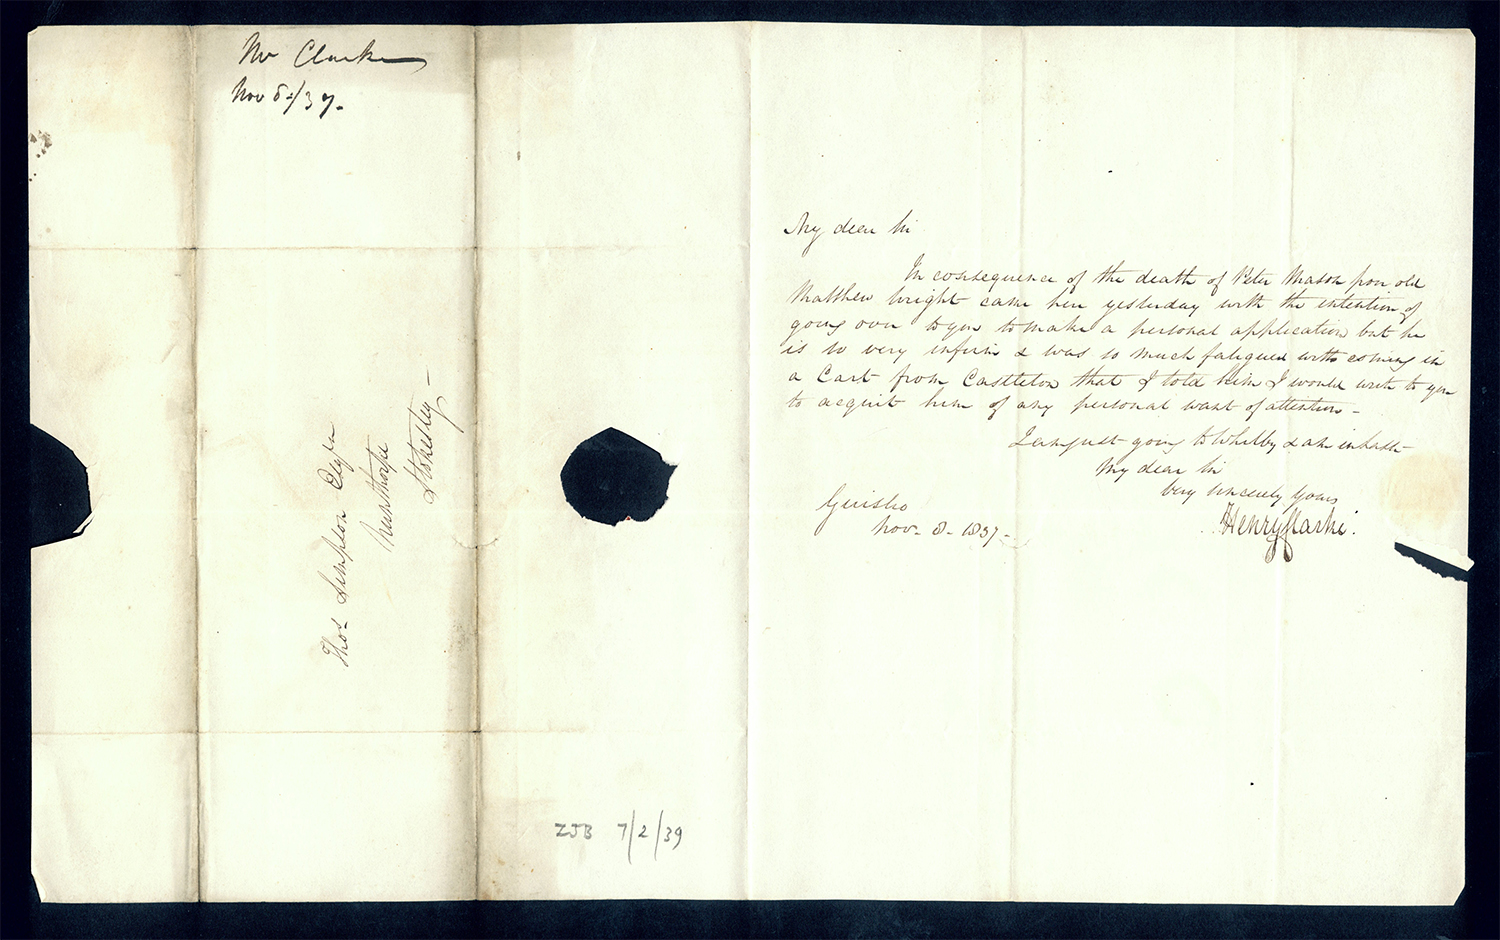 Mr Clarke
Nov 8/37.
Thos Simpson Esqre
Nunthorpe
Stokesley
ZJB 7/2/39
My dear Sir
In consequence of the death of Peter Mason poor old
Matthew Wright came here yesterday with the intention of
going over to you to make a personal application but he
is so very infirm & was so much fatigued with coming in
a Cart from Castleton that I told him I would write to you
to acquit him of any personal want of attention -
I am just going to Whitby & am in haste
My dear Sir
Very sincerely Yours
Henry Clarke.
Guisbro
Nov. 8 - 1837 -